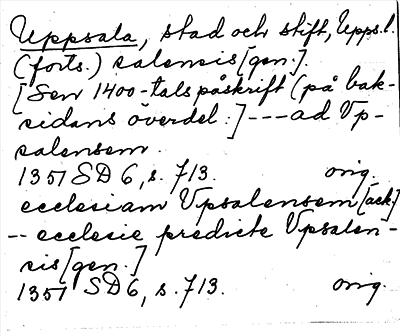 Uppsala, stad och stift, Upps.l.
(forts.) salensis [gen.].
[Sen 1400-talspåskrift (på bak-
sidans överdel:] --- ad Up-
salensem.
1351 SD 6, s. 713. orig.
ecclesiam Upsalensem [ack.]
-- ecclesie predicte Upsalen-
sis [gen.]
1351 SD 6, s. 713. orig.